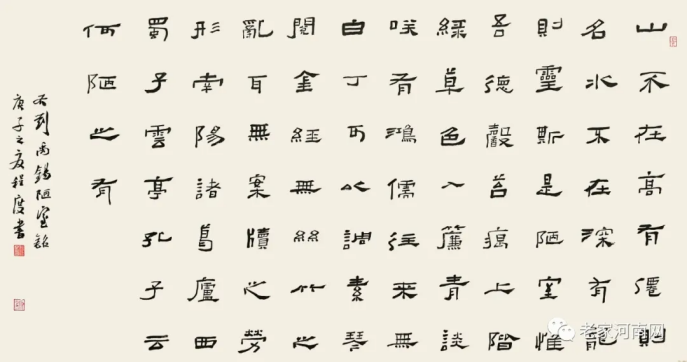 山不在高有僊則
名水不在深有龍
則靈斯是陋室惟
吾德馨苔痕上階
綠草色入簾青談
咲有鴻儒往來無
白丁可以調素琴
閱金經無絲竹之
亂耳無案牘之勞
形南陽諸葛廬西
蜀子雲亭孔子云
何陋之有
右劉禹錫陋室銘
庚子之夏程度書
老家河南网